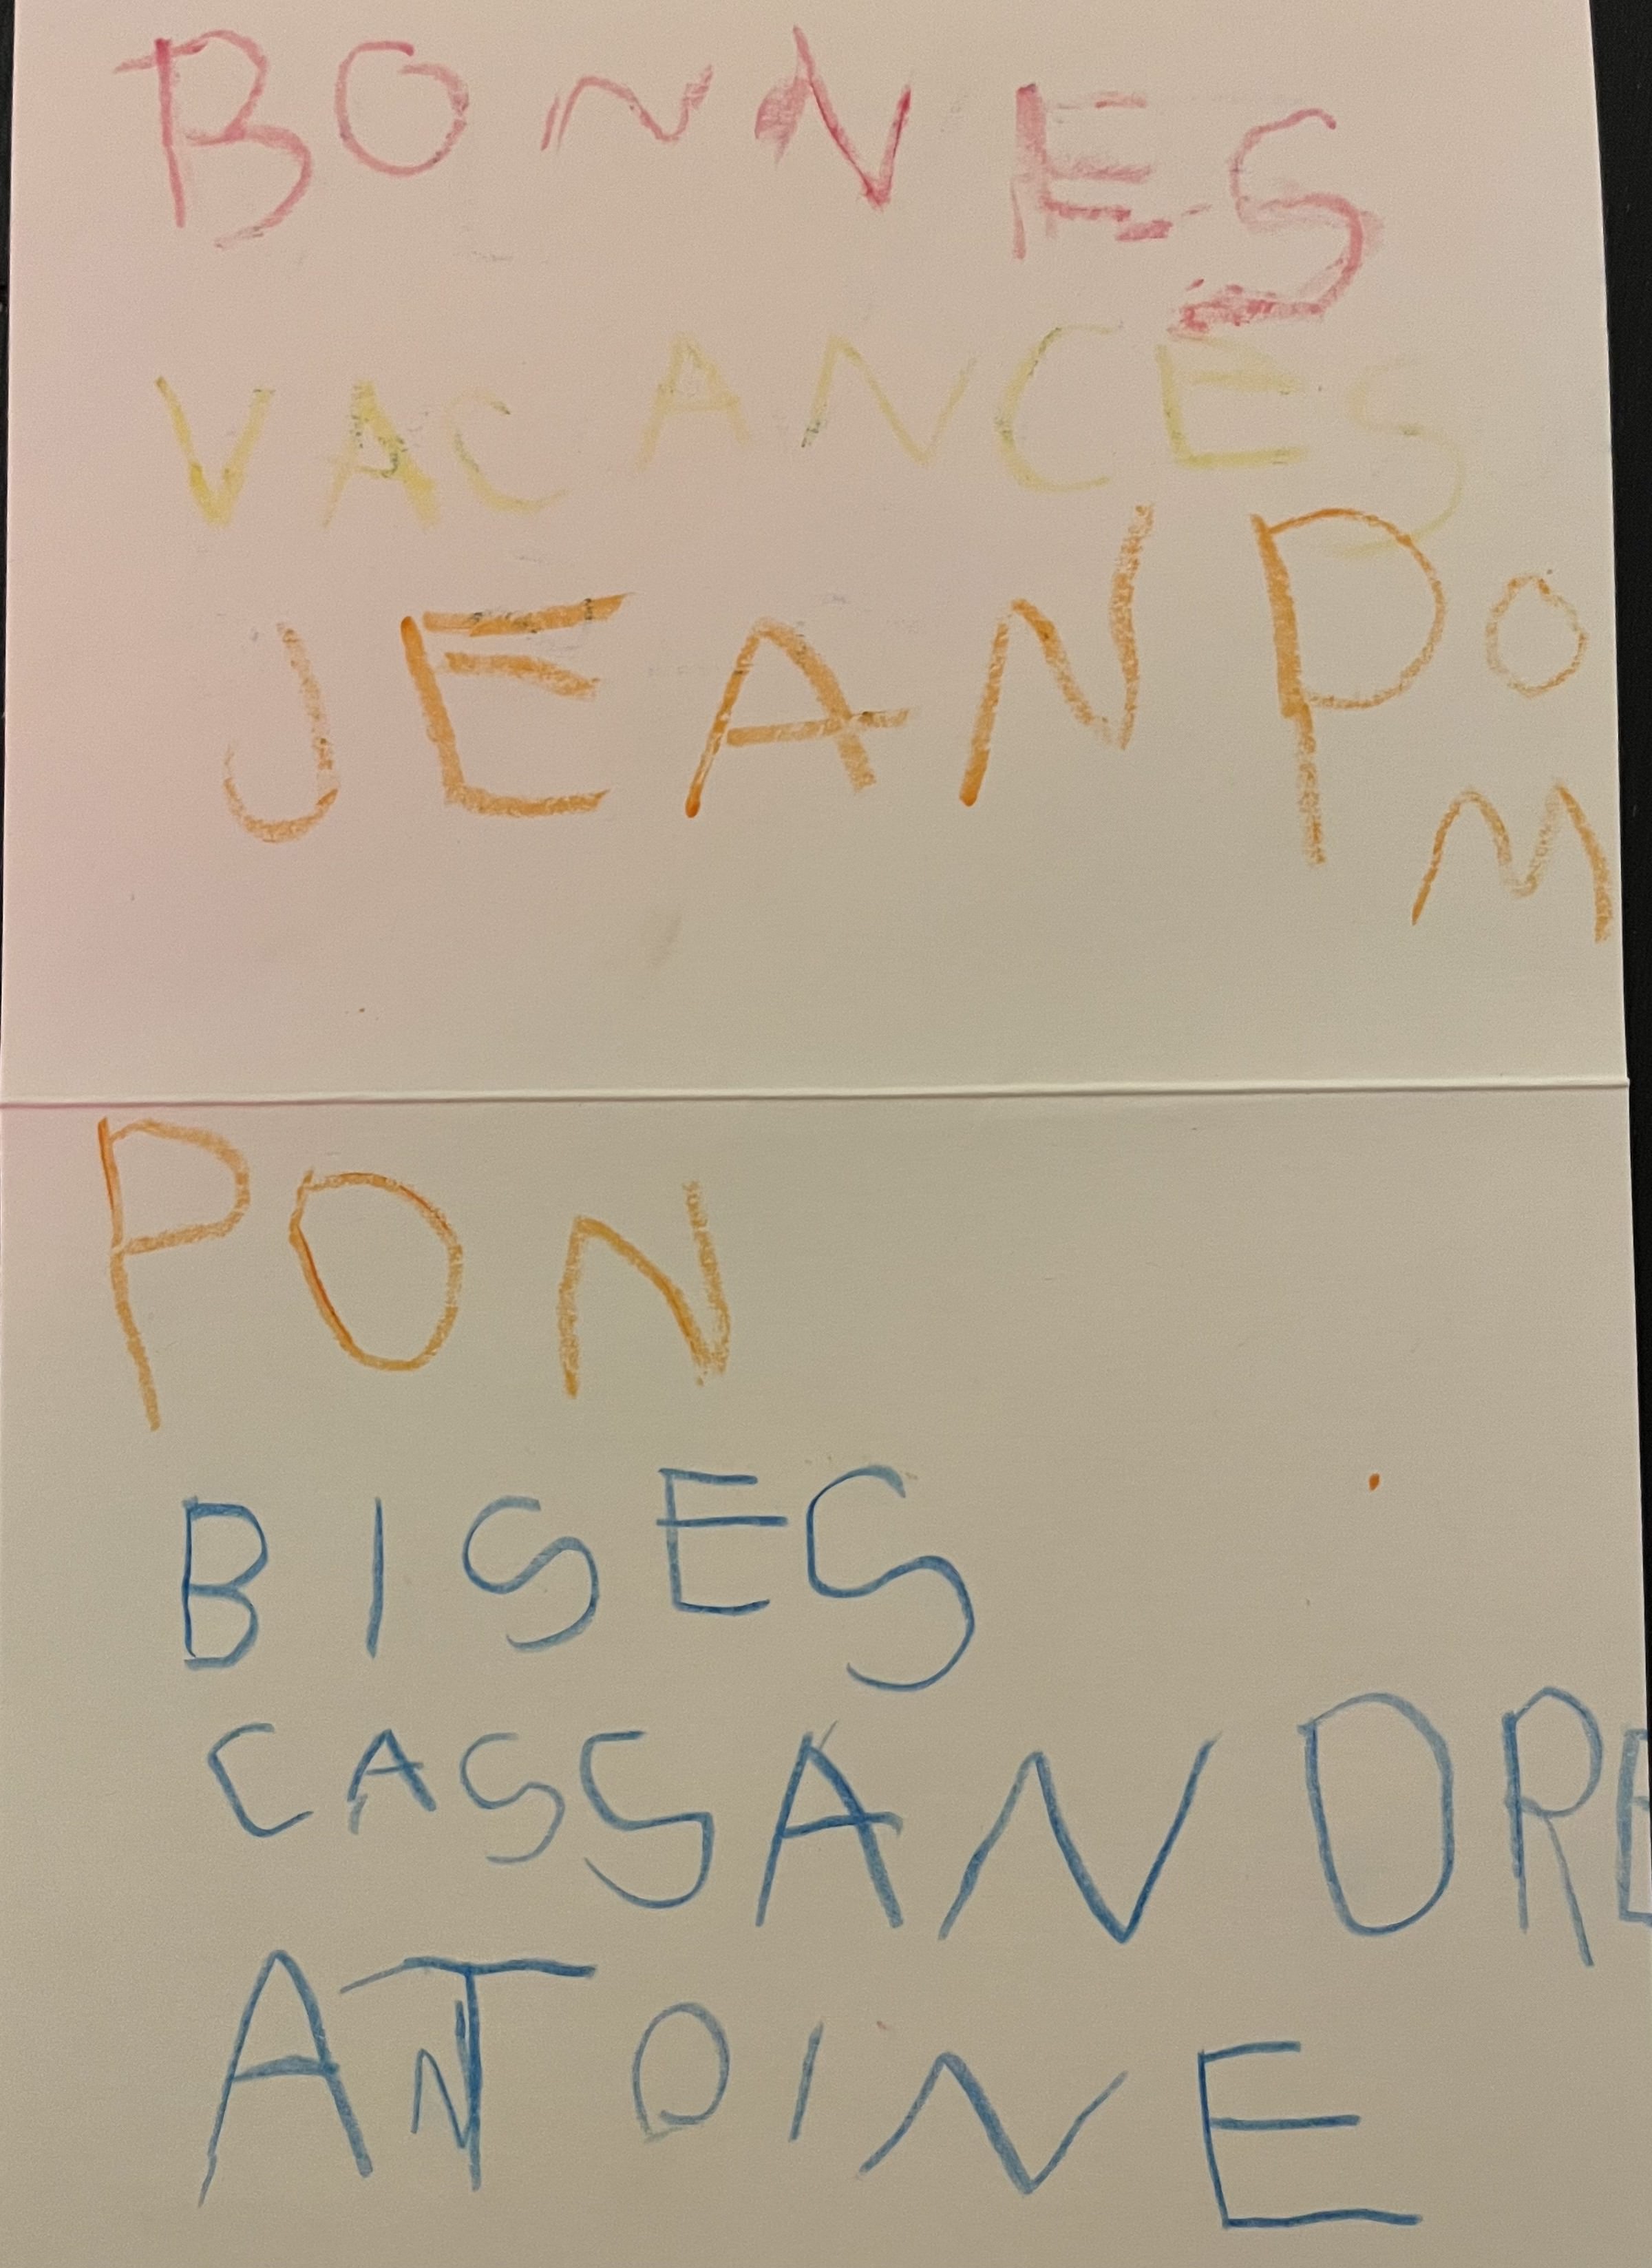 BONNES
VACANCES
JEAN PO
M
PON
BISES
CASSANDRE
ANTOINE